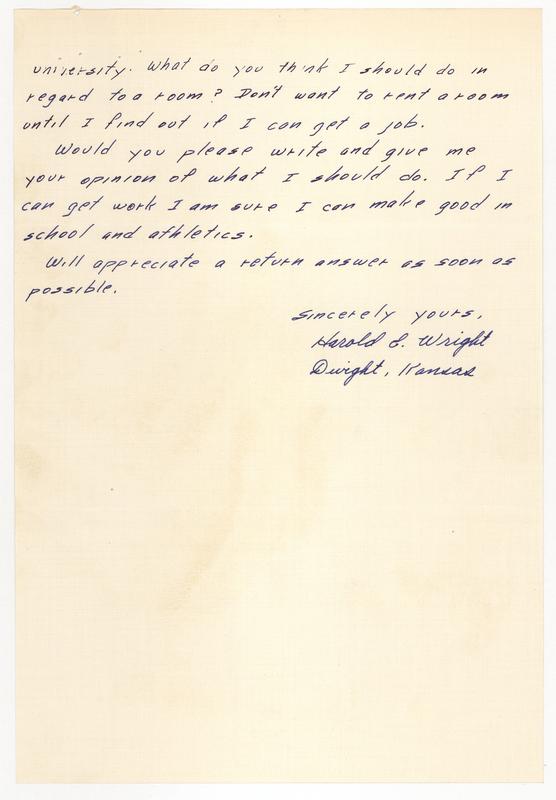 university. What do you think I should do in
regard to a room? Don't want to rent a room
until I find out if I can get a job.
Would you please write and give me
your opinion of what I should do. If I
can get work I am sure I can make good in
school and athletics.
Will appreciate a return answer as soon as
possible.
Sincerely yours,
Harold E. Wright
Dwight, Kansas